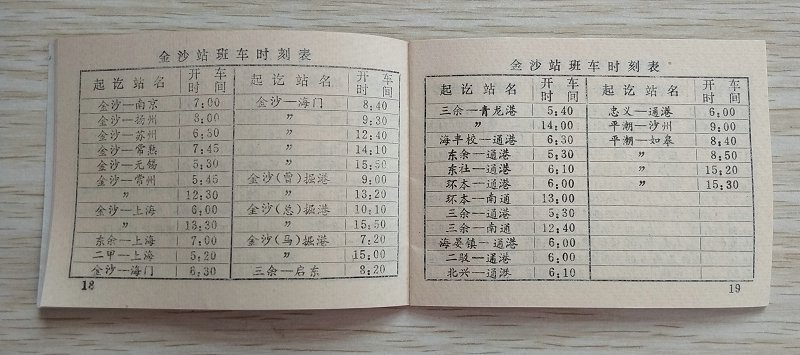 金沙站班车时刻表
起讫站名 开车时间 起讫站名 开车时间
金沙—南京 7:00 金沙—海门 8:40
金沙—扬州 8:00 〃 9:30
金沙—苏州 6:30 〃 12:40
金沙—常熟 7:45 〃 14:10
金沙—无锡 5:30 〃 15:50
金沙—常州 5:45 金沙(曹)掘港 9:00
〃 12:30 〃 13:20
金沙—上海 6:00 金沙(总)掘港 10:10
〃 13:30 〃 15:50
东余—上海 7:00 金沙(马)掘港 7:20
二甲—上海 5:20 〃 15:00
金沙—海门 6:30 三余—启东 8:20
18
金沙站班车时刻表
起讫站名 开车时间 起讫站名 开车时间
三余—青龙港 5:40 忠义—通港 6:00
〃 14:00 平潮—沙州 9:00
海丰校—通港 6:30 平潮—如皋 8:40
东余—通港 5:30 〃 8:50
东社—通港 6:10 〃 15:20
环本—通港 6:00 〃 15:30
环本—南通 13:00
三余—通港 5:30
三余—南通 12:40
海晏镇—通港 6:00
二驳—通港 6:00
北兴—通港 6:10
19